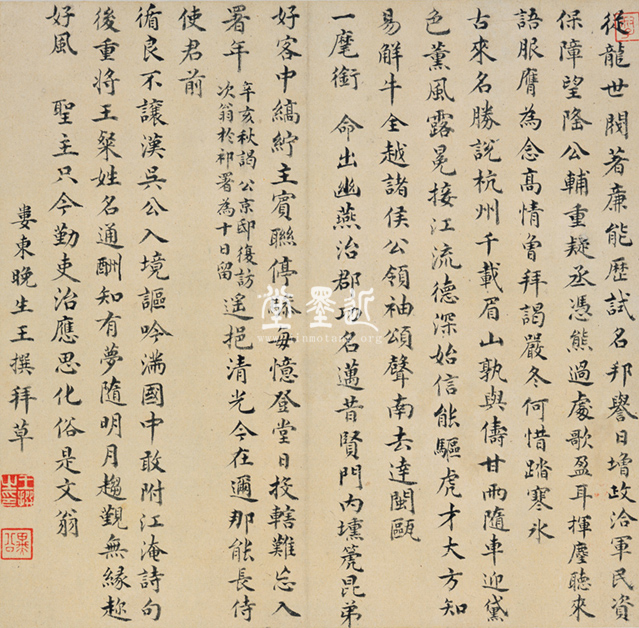 從龍世閥著廉能歷試名邦譽日增政洽軍民資
保障望隆公輔重疑丞憑熊過處歌盈耳揮麈聽來
語服膺為念高情曾拜謁嚴冬何惜踏寒冰
古來名勝說杭州千載眉山孰與儔甘雨隨車迎黛
色薰風露冕接江流德深始信能驅虎才大方知
易解牛全越諸侯公領袖頌聲南去達閩甌
一麾銜 命出幽燕治郡功名邁昔賢門內壎箎昆弟
好客中縞紵主賓聯停驂每憶登堂日投轄難忘入
署年 辛亥秋謁公京邸復訪
次翁於祁署為十日留
遙挹清光今在邇那能長侍
使君前
循良不讓漢吳公入境謳吟滿國中敢附江淹詩句
後重將王粲姓名通酬知有夢隨明月趨覲無緣趂
好風 聖主只今勤吏治應思化俗是文翁
婁東晚生王撰拜草
近墨堂
www.jinmotang.org